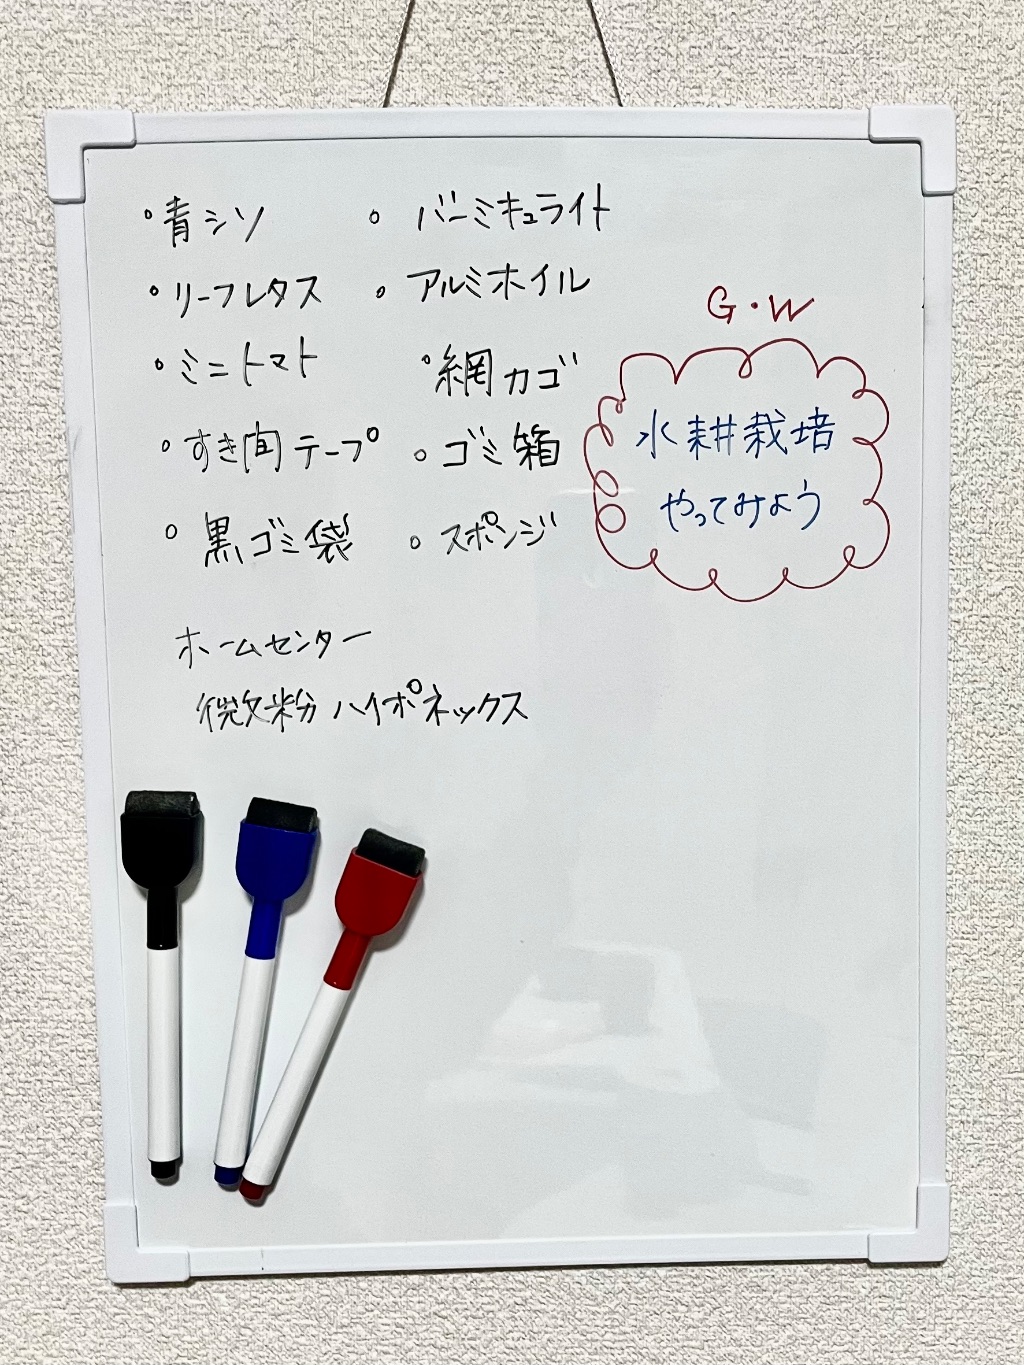 ◦青シソ
◦リーフレタス
◦ミニトマト
◦すき間テープ
◦黒ゴミ袋
◦バーミキュライト
◦アルミホイル
◦網カゴ
◦ゴミ箱
◦スポンジ
ホームセンター
微粉ハイポネックス
G・W
水耕栽培
やってみよう